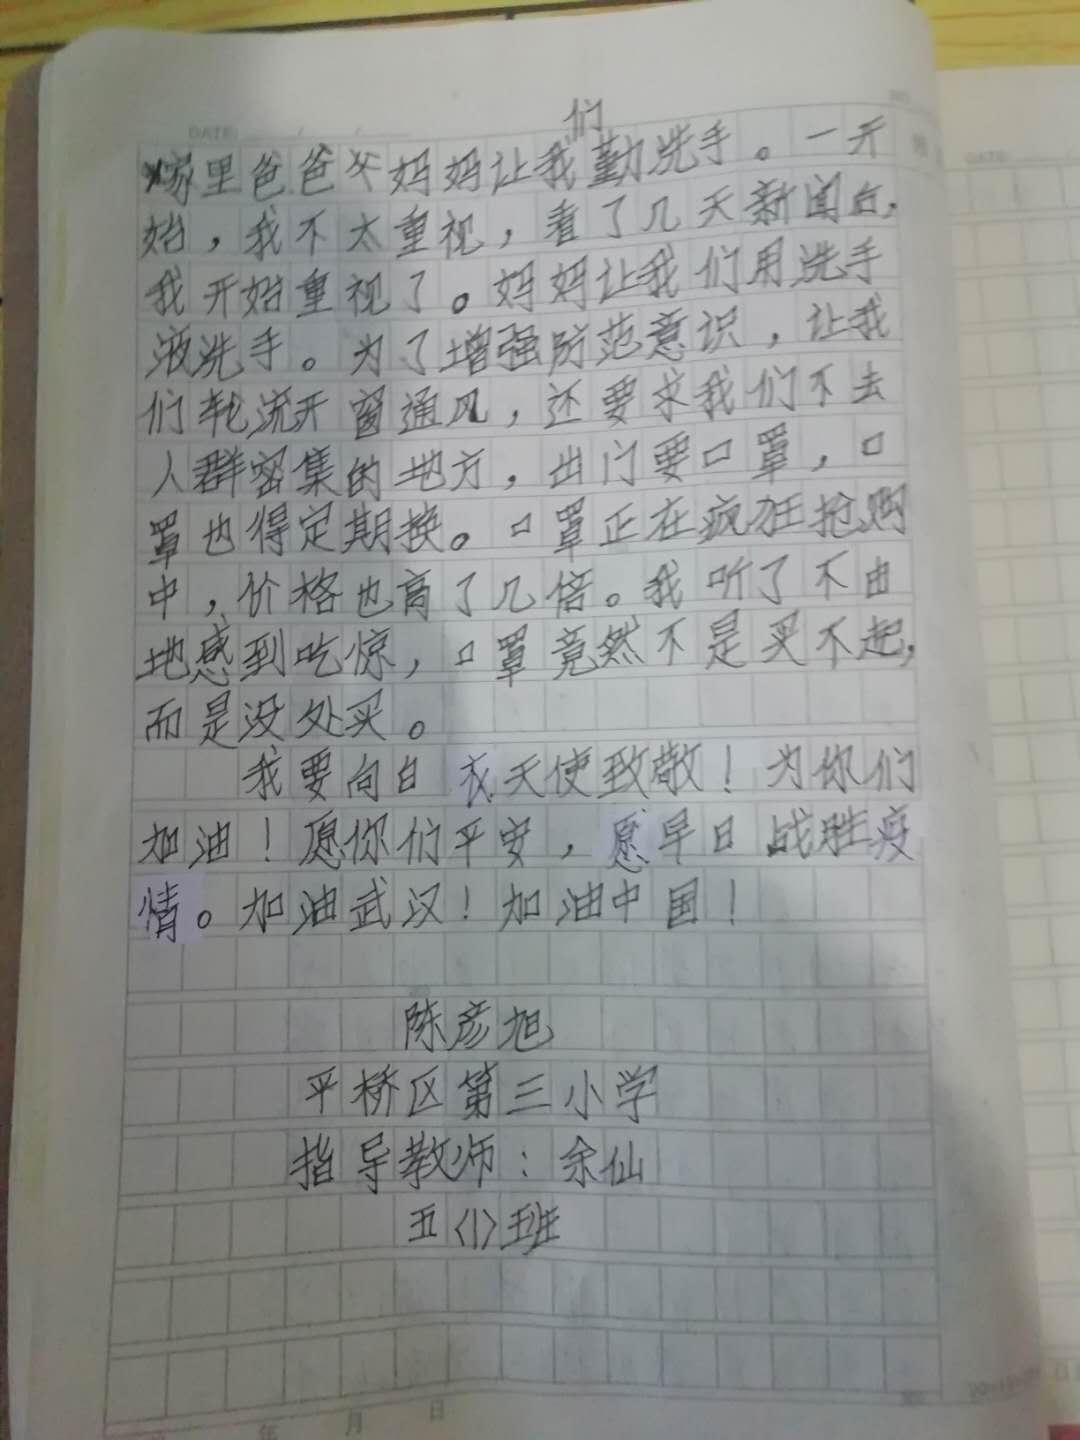 DATE:
们
家里爸爸妈妈让我勤洗手。一开
始，我不太重视，看了几天新闻后，
我开始重视了。妈妈让我们用洗手
液洗手。为了增强防范意识，让我
们轮流开窗通风，还要求我们不去
人群密集的地方，出门要口罩，口
罩也得定期换。口罩正在疯狂抢购
中，价格也高了几倍。我听了不由
地感到吃惊，口罩竟然不是买不起，
而是没处买。
我要向白衣天使致敬！为你们
加油！愿你们平安，愿早日战胜疫
情。加油武汉！加油中国！
陈彦旭
平桥区第三小学
指导教师：余仙
五〈1〉班
年 月 日